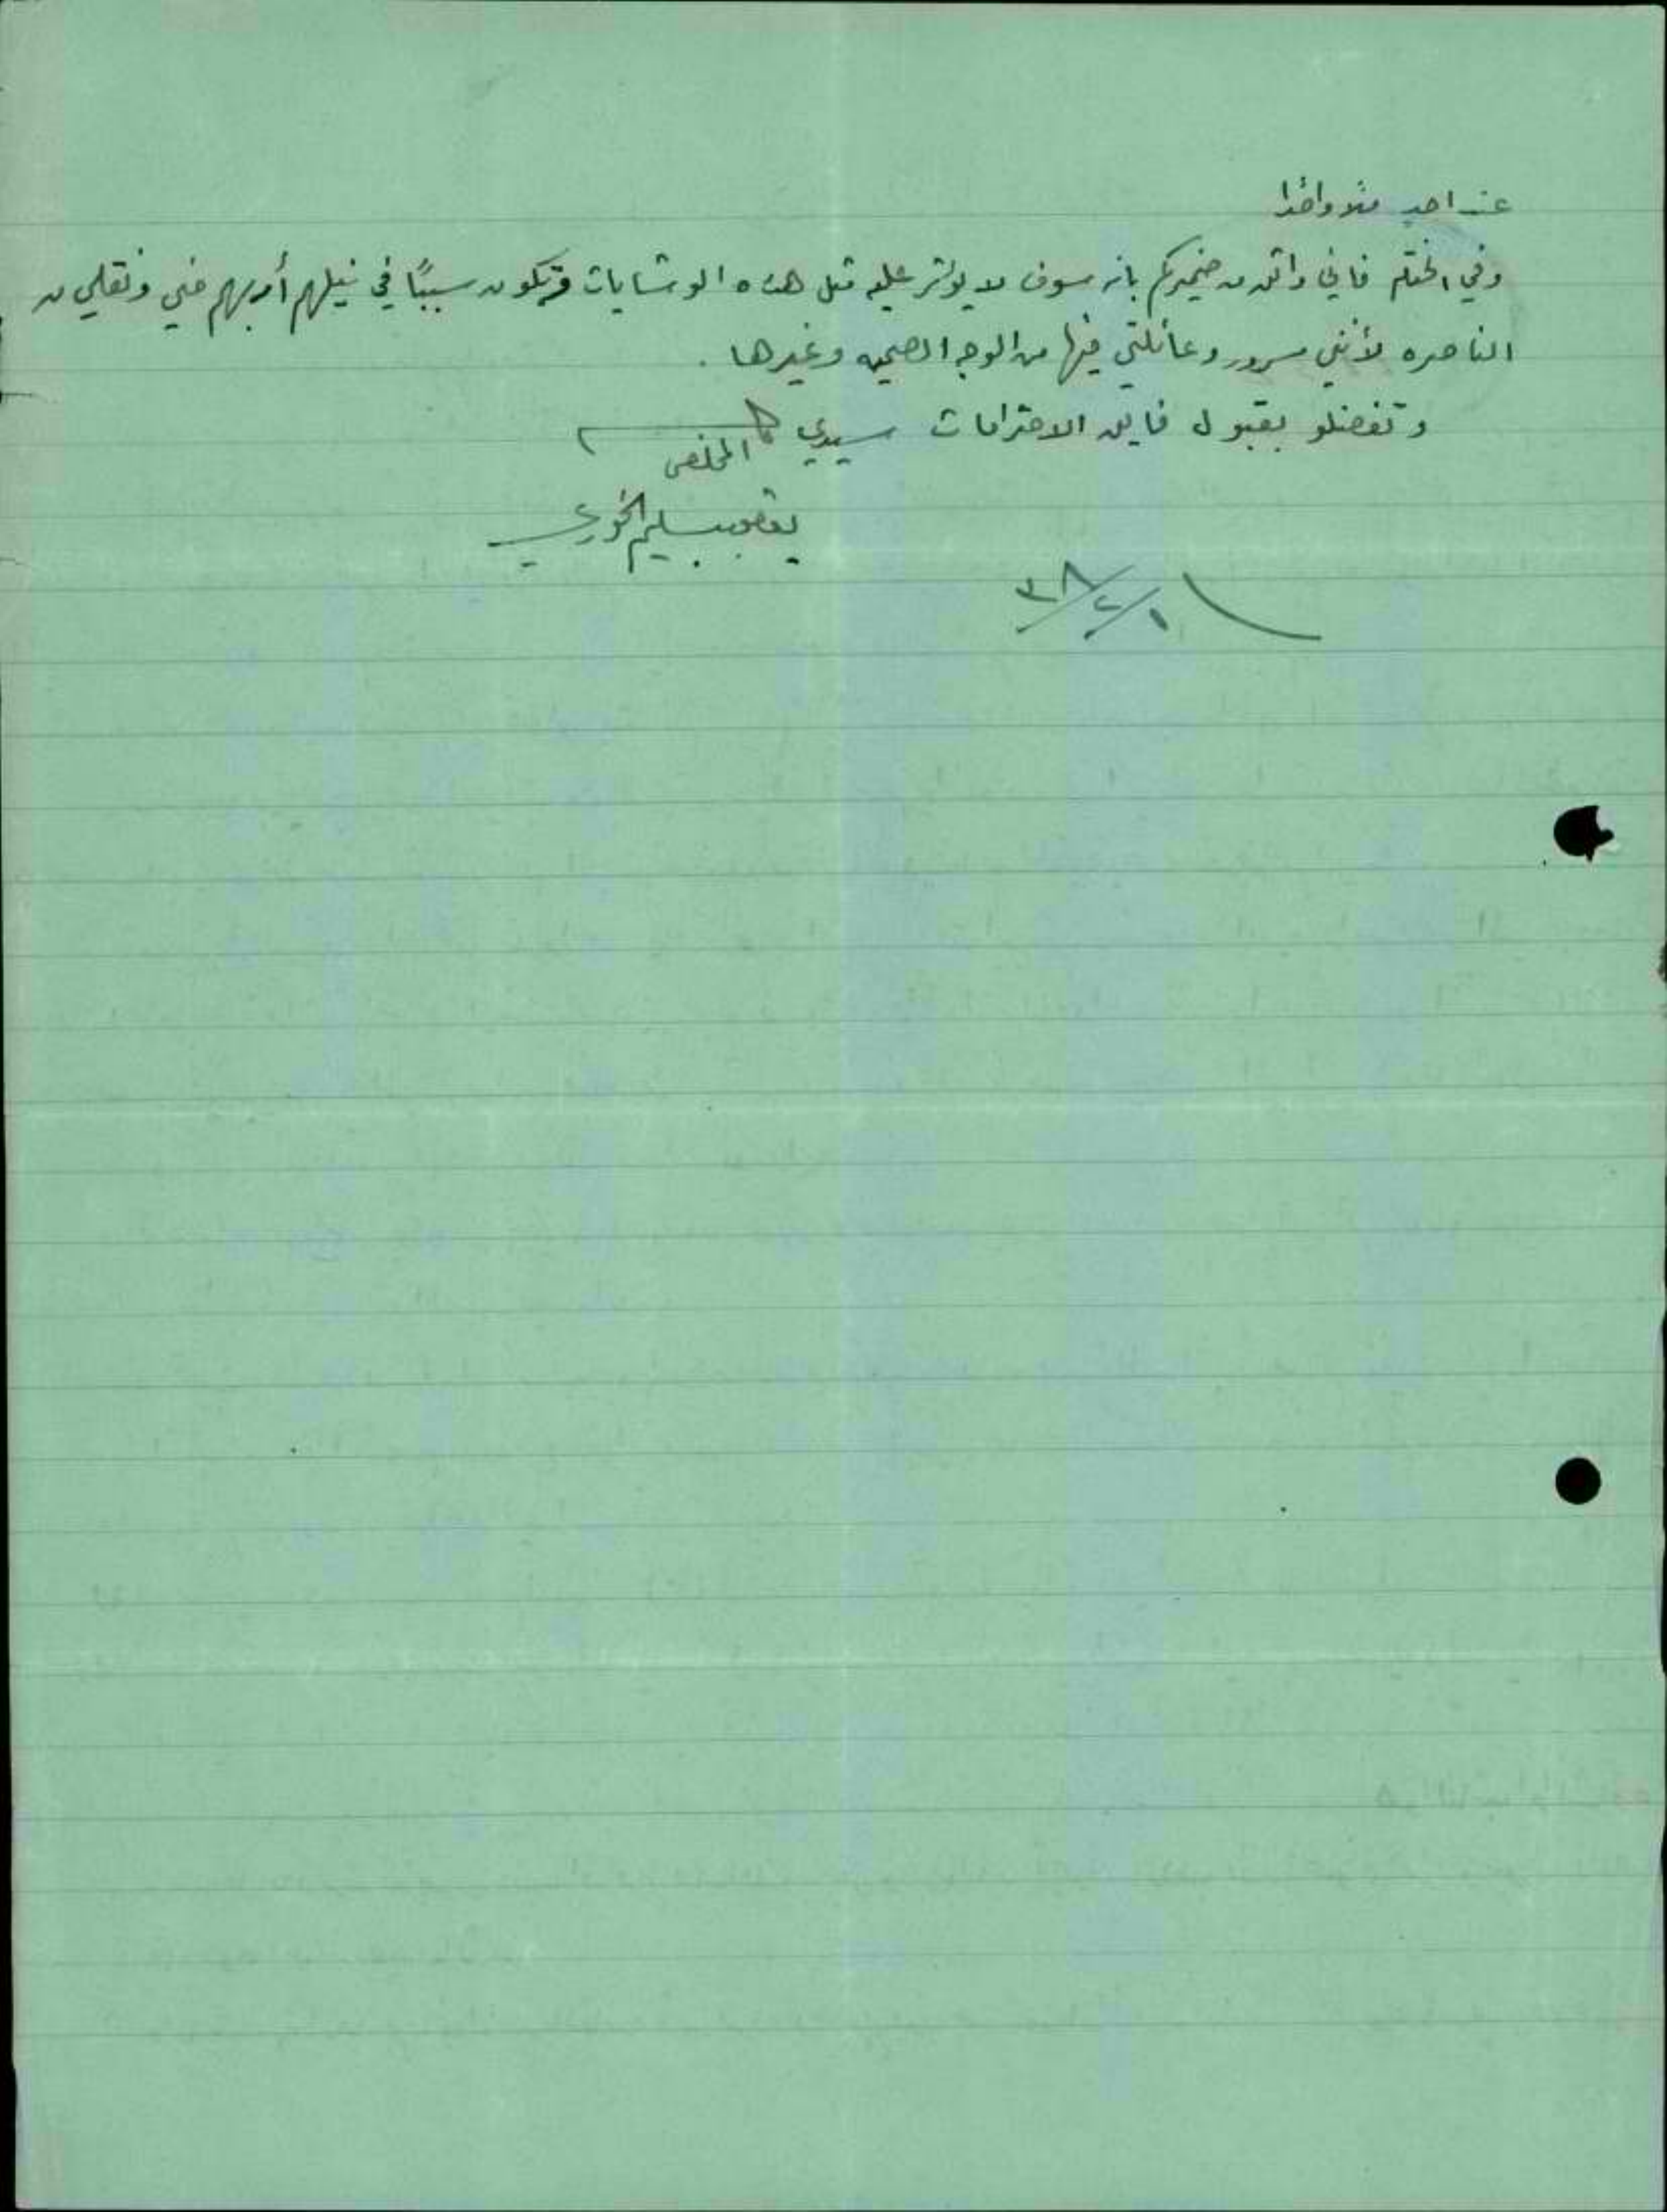 عند احدٍ مثلا واحدا
وفي الختام فاني واثق من ضميركم بانه سوف لا يؤثر عليه مثل هذه الوشايات وتكون سببًا في نيلهم أربهم مني ونقلي من
الناصره لأنني مسرور وعائلتي فيها من الوجه الصحيه وغيرها .
وتفضلو بقبول فايق الاحترامات سيدي
المخلص
يعقوب سليم الخوري
١/٢/٣٨